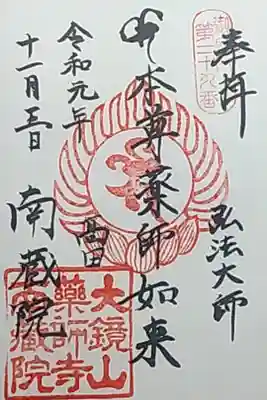 奉拝
第二十九番
弘法大師
本尊薬師如来
令和元年
十一月三日
南蔵院
大鏡山
薬師寺
南藏院